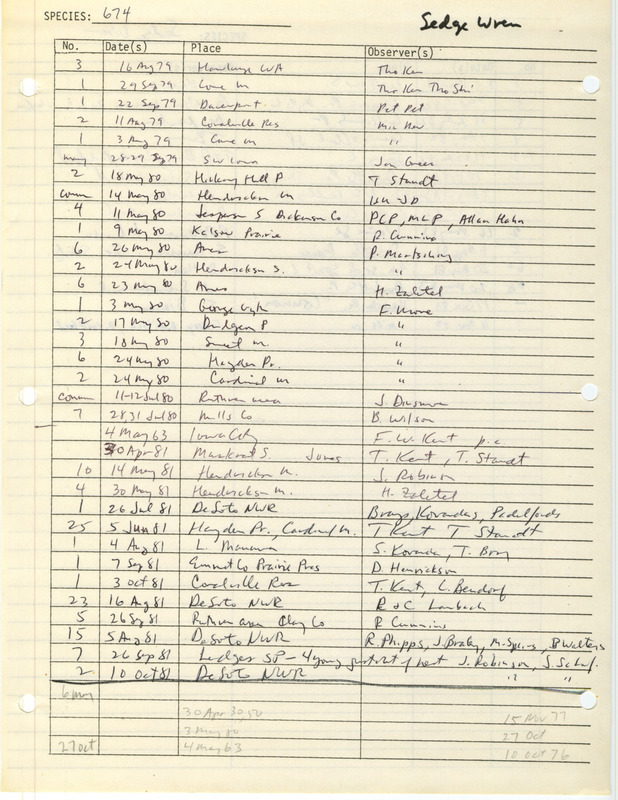 SPECIES: 674 Sedge Wren
No. Date(s) Place Observer(s)
3 16 Aug 79 WA Tho Ken
1 29 Sep 79 Cone m Tho Ken Tho Ski
1 22 Sep 79 Davenport Pet Pet
2 11 Aug 79 Coralville Res Mic New
1 3 Aug 79 Cone m "
many 28-29 Sep 79 SW Iowa
2 18 May 80 Hickory Hill P T Staudt
comm 14 May 80 Hendrickson m JD
4 11 May 80 Jasper S Dickinson Co PCP, MLP, Allan Hahn
1 9 May 80 Kelsow Prairie R. Cummins
6 26 May 80 Ames P. Martsching
2 24 May 80 Hendrickson S. "
6 23 May 80 Ames H. Zaletel
1 3 May 80 George F. Moore
2 17 May 80 Dudgeon P "
3 18 May 80 Sweet m. "
6 24 May 80 Hayden Pr. "
2 24 May 80 Cardinal m "
comm 11-12 Jul 80 Ruthven area J. Dinsmore
7 28 31 Jul 80 Mills Co B. Wilson
4 May 63 Iowa City F. W. Kent p.c.
30 Apr 81 Muskrat S. Jones T. Kent, T. Staudt
10 14 May 81 Hendrickson m. J. Robinson
4 30 May 81 Hendrickson m. H. Zaletel
1 26 Jul 81 DeSoto NWR Bray, Kovandas, Padelfords
25 5 Jun 81 Hayden Pr., Cardinal m. T Kent T Staudt
1 4 Aug 81 L. Manawa S. Kovanda, T. Bray
1 7 Sep 81 Emmet Co Prairie Pres D. Henrickson
1 3 Oct 81 Coralville Res T. Kent, L. Bendorf
23 16 Aug 81 DeSoto NWR R & C Laubach
5 26 Sep 81 Ruthven area Clay Co R Cummins
15 5 Aug 81 DeSoto NWR R. Phipps, J. Brady, M. Spears, B Walters
7 26 Sep 81 Ledges SP - 4 young just out of nest J. Robinson, J. Schuf.
2 10 Oct 81 DeSoto NWR " "
6 may
30 Apr 30 50 15 Nov 77
3 May 80 27 Oct
27 oct 4 May 63 10 Oct 76